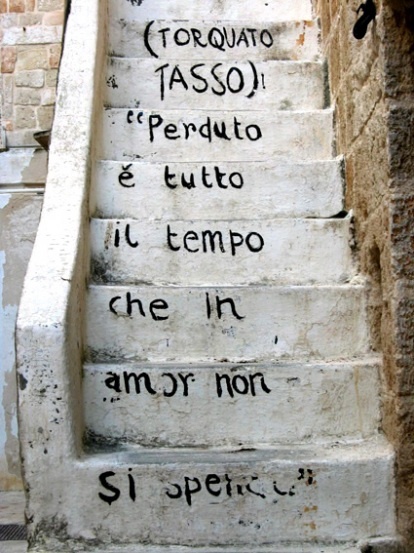 (TORQUATO
TASSO)!
"Perduto
é tutto
il tempo
che in
amor non
si